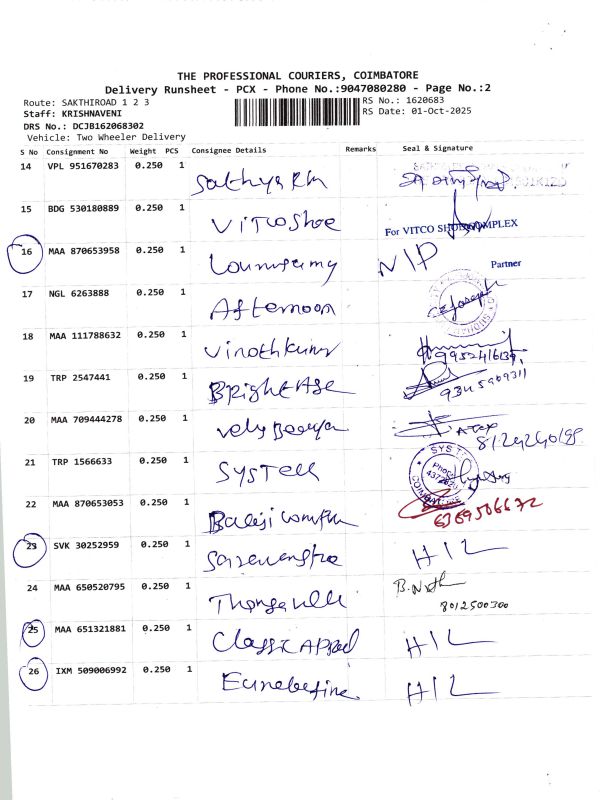 THE PROFESSIONAL COURIERS, COIMBATORE
Delivery Runsheet - PCX - Phone No.:9047080280 - Page No.:2
Route: SAKTHIROAD 1 2 3
RS No.: 1620683
Staff: KRISHNAVENI
RS Date: 01-Oct-2025
DRS No.: DCJB162068302
Vehicle: Two Wheeler Delivery
S No Consignment No Weight PCS Consignee Details Remarks Seal & Signature
14 VPL 951670283 0.250 1
15 BDG 530180889 0.250 1 Vitco Shoe
For VITCO SHOE COMPLEX
Partner
16 MAA 870653958 0.250 1 N/P
17 NGL 6263888 0.250 1 Afternoon
18 MAA 111788632 0.250 1 Vinothkumr
19 TRP 2547441 0.250 1
9345909311
20 MAA 709444278 0.250 1
21 TRP 1566633 0.250 1 SYSTech
22 MAA 870653053 0.250 1 Balaji
6369506672
23 SVK 30252959 0.250 1 H/L
24 MAA 650520795 0.250 1
8012500300
25 MAA 651321881 0.250 1 Classic H/L
26 IXM 509006992 0.250 1 H/L